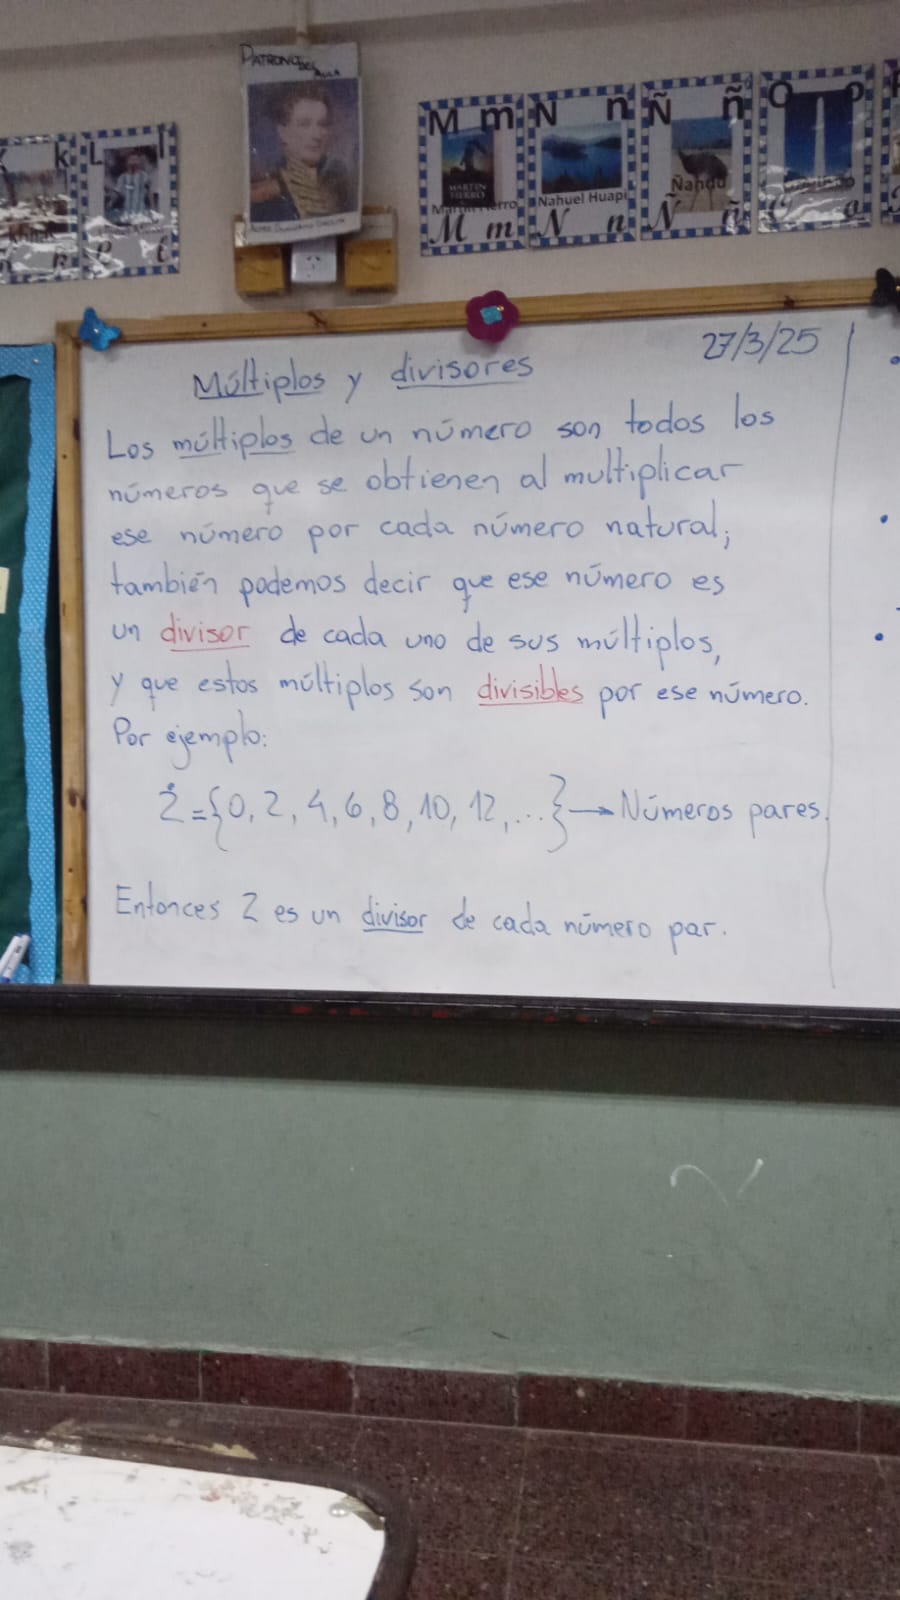 PATRONO DEL AULA
K k
L l
M m
N n
Ñ ñ
O o
MARTIN FIERRO
Nahuel Huapi
Ñandú
M m
N n
Ñ ñ
O o
27/3/25
Múltiplos y divisores
Los múltiplos de un número son todos los
números que se obtienen al multiplicar
ese número por cada número natural;
también podemos decir que ese número es
un divisor de cada uno de sus múltiplos,
y que estos múltiplos son divisibles por ese número.
Por ejemplo:
2̇ = {0, 2, 4, 6, 8, 10, 12, ...} → Números pares.
Entonces 2 es un divisor de cada número par.